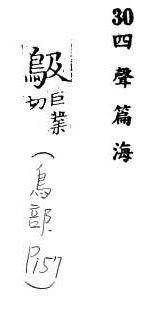 30四聲篇海
巨業
切
(鳥部 P157)